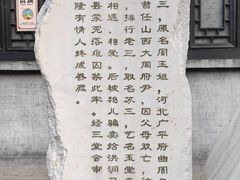 三，原名周玉姐，河北广平府曲周
曾任山西大同府尹，因父母双亡，
，排行老三，取名苏三，艺名玉堂春
相遇、相爱。后被鸨儿骗卖给洪洞
县蒙冤落难囚禁此牢。经三堂会审
隆有情人终成眷属。